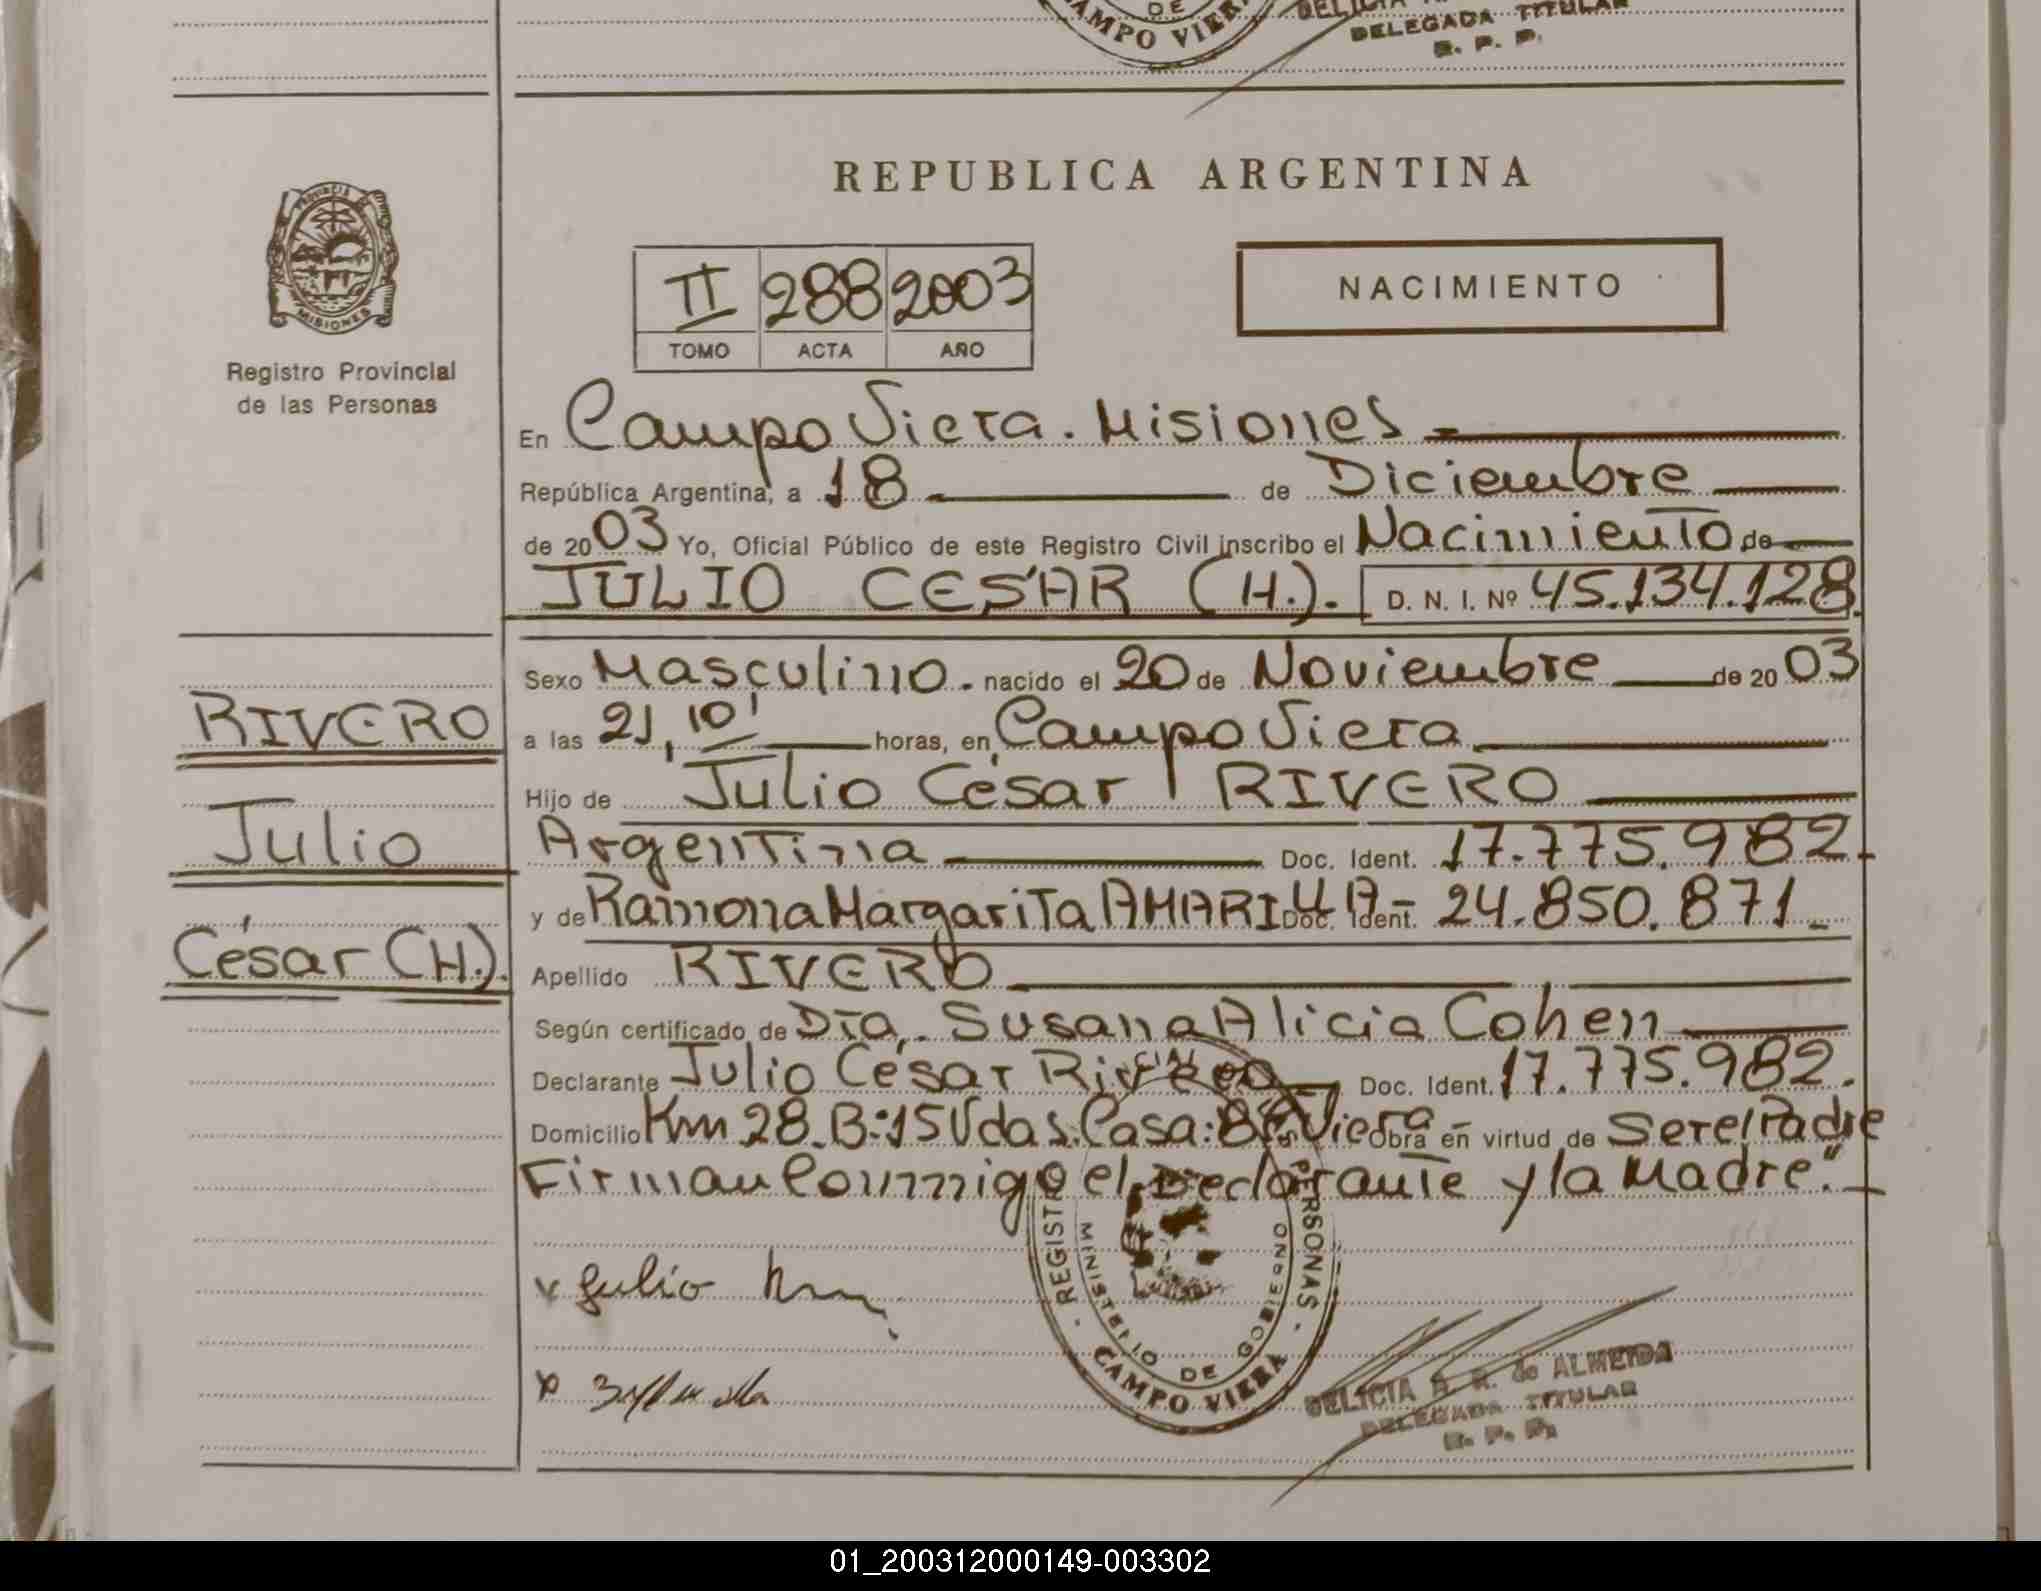 DE
CAMPO VIERA
DELEGADA TITULAR
R. P. P.
REPUBLICA ARGENTINA
PROVINCIA
MISIONES
Registro Provincial
de las Personas
II 288 2003
TOMO ACTA AÑO
NACIMIENTO
En Campo Viera. Misiones
República Argentina, a 18 de Diciembre
de 2003 Yo, Oficial Público de este Registro Civil inscribo el Nacimiento de
JULIO CESAR (H.). D. N. I. Nº 45.134.128
Sexo Masculino. nacido el 20 de Noviembre de 2003
RIVERO
a las 21,10' horas, en Campo Viera
Hijo de Julio César RIVERO
Julio
Argentina Doc. Ident. 17.775.982
y de Ramona Margarita AMARILLA - Doc. Ident. 24.850.871
César (H.).
Apellido RIVERO
Según certificado de Dra. Susana Alicia Cohen
Declarante Julio César Rivero Doc. Ident. 17.775.982.
Domicilio Km 28. B:15 Vdas. Casa: 8 Viera Obra en virtud de Ser el Padre
Firman Conmigo el Declarante y la Madre."
REGISTRO PERSONAS
MINISTERIO DE GOBIERNO
CAMPO VIERA
Julio
DELICIA R. de ALMEIDA
DELEGADA TITULAR
R. P. P.
01_200312000149-003302